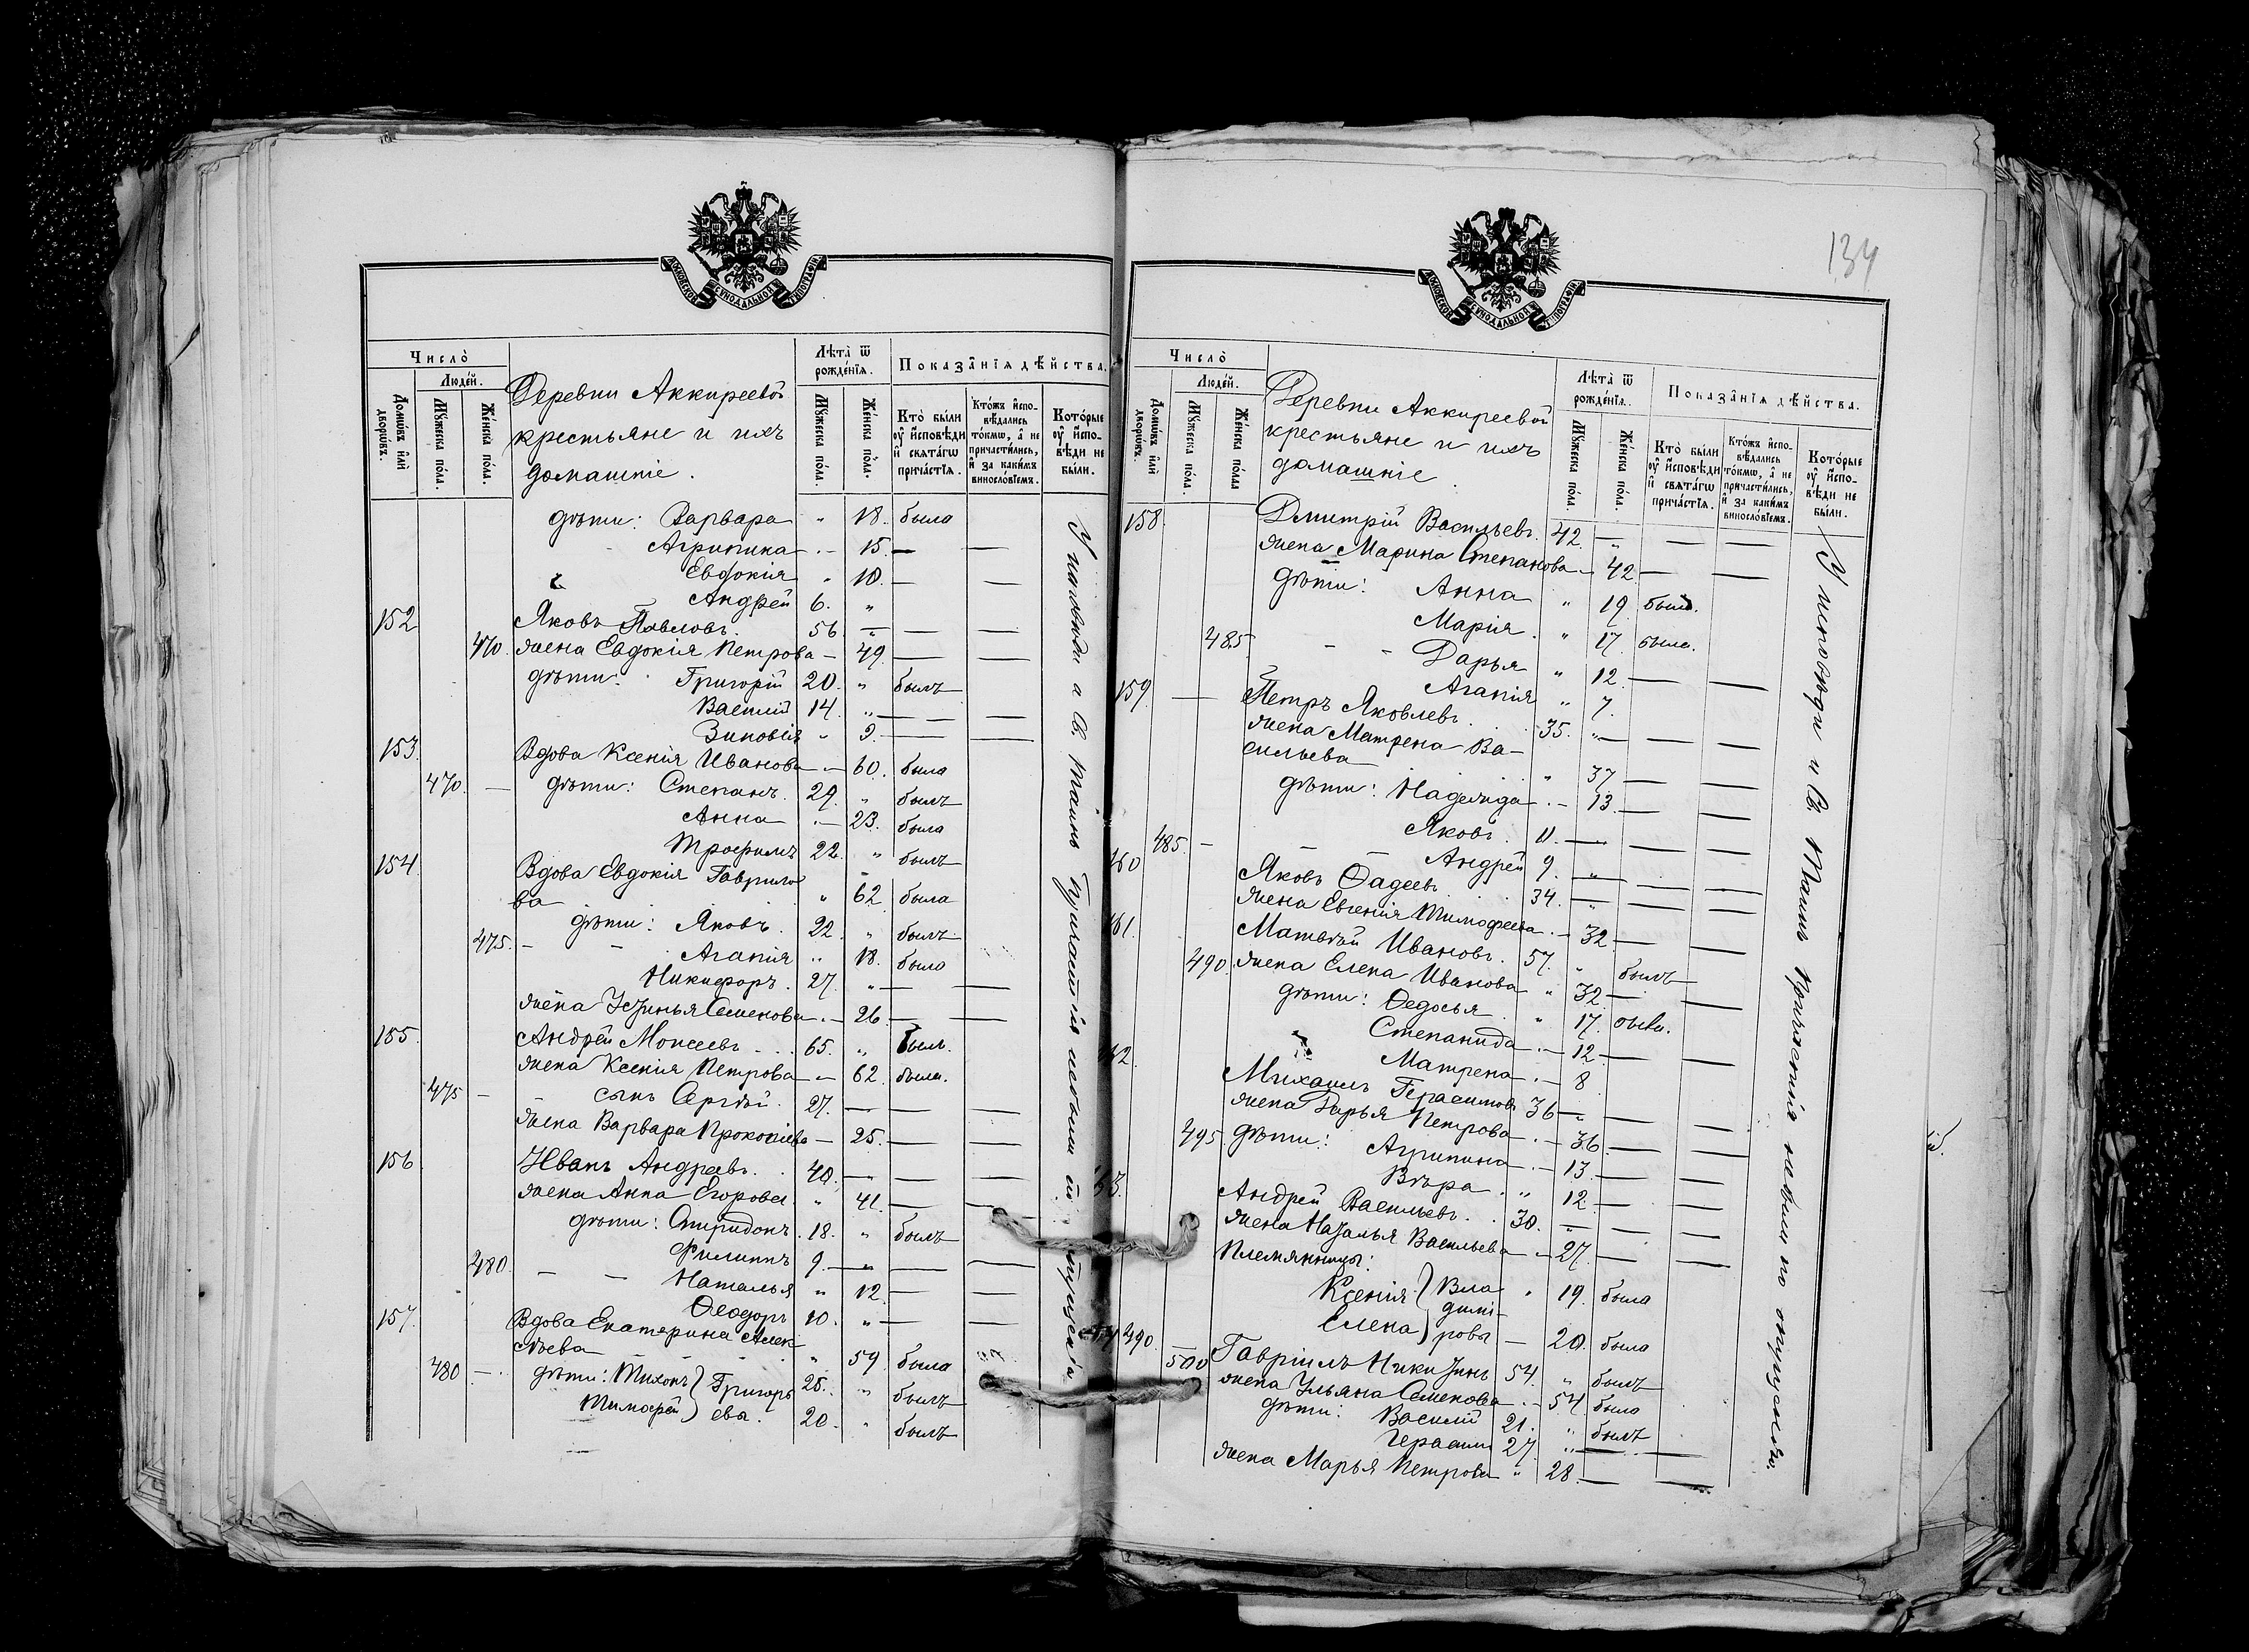 МОСКОВСКОЙ СѴНОДАЛЬНОЙ ТИПОГРАФІИ
Число̀
Людѐй.
Домѡ́въ и҆лѝ дворѡ́въ.
Мꙋ́жеска по́ла.
Же́нска по́ла.
Деревни Аккиреевой
крестьяне и ихъ
домашніе.
Лѣта̀ ѿ рожде́нїѧ.
Мꙋ́жеска по́ла.
Же́нска по́ла.
Показа̑нїѧ дѣ́йства.
Кто̀ бы́ли ᲂу҆ и҆сповѣ́ди и҆ свѧта́гѡ прича́стїѧ.
Кто́жъ и҆спо-вѣ́дались то́кмѡ, а҆ не причасти́лись, и҆ за каки́мъ винослѻ́вїемъ.
Кото́рые ᲂу҆ и҆спо-вѣ́ди не бы́ли.
дѣти: Варвара „ 18. была
Агрипина — 15. — —
Евдокія „ 10. — —
Андрей 6. „
152 Яковъ Павловъ. 56. „ — —
470. жена Евдокія Петрова — 49. — —
дѣти: Григорій 20. „ былъ
Василій 14. „ — —
Зиновія „ 9. — —
153. Вдова Ксенія Иванова — 60. была
470. — дѣти: Степанъ. 29. „ былъ
Анна — 23. была
Трофимъ 22. „ былъ
154. Вдова Евдокія Гаврило
ва „ 62. была
дѣти: Яковъ. 22. „ былъ
475. — — Агапія „ 18. была
Никифоръ. 27. „ — —
жена Устинья Семенова — 26. — —
155. Андрей Моисеевъ 65. „ былъ.
жена Ксенія Петрова — 62. была.
475 — сынъ Сергѣй. 27. — — —
жена Варвара Прокопіева — 25. — —
156 Иванъ Андреевъ. 40. — — —
жена Анна Егорова „ 41. — —
дѣти: Спиридонъ. 18. „ былъ
Филиппъ 9. — — —
480. — — Наталья „ 12. — —
Ѳеодоръ 10. „ — —
157. Вдова Екатерина Алек
сѣева „ 59. была
480 — дѣти: Тихонъ } Григорь 25. „ былъ
Тимофей } евы. 20. „ былъ
134
МОСКОВСКОЙ СѴНОДАЛЬНОЙ ТИПОГРАФІИ
Число̀
Людѐй.
Домѡ́въ и҆лѝ дворѡ́въ.
Мꙋ́жеска по́ла.
Же́нска по́ла
Деревни Аккиреевой
крестьяне и ихъ
домашніе.
Лѣта̀ ѿ рожде́нїѧ.
Мꙋ́жеска по́ла.
Же́нска по́ла.
Показа̑нїѧ дѣ́йства.
Кто̀ бы́ли ᲂу҆ и҆сповѣ́ди и҆ свѧта́гѡ прича́стїѧ.
Кто́жъ и҆спо-вѣ́дались то́кмѡ, а҆ не причасти́лись, и҆ за каки́мъ винослѻ́вїемъ.
Кото́рые ᲂу҆ и҆спо-вѣ́ди не бы́ли.
У исповѣди и Св. Таинъ Причастія небыли по опущенію.
158. Дмитрій Васильевъ. 42. — — —
жена Марина Степанова — 42. — —
дѣти: Анна „ 19. была.
Марія. „ 17. была.
485 — — Дарья „ 12. — —
Агапія „ 7.
159. — Петръ Яковлевъ. 35. „ — —
жена Матрена Ва-
сильева „ 37 — —
дѣти: Надежда — 13. — —
Яковъ. 11. — — —
485. — Андрей 9. „ — —
160 Яковъ Ѳадеевъ. 34. „ — —
жена Евгенія Тимофеева — 32 — —
161. Матвѣй Ивановъ. 57. „ былъ
490. жена Елена Иванова „ 32 — —
дѣти: Ѳедосья „ 17. была.
Степанида — 12 — —
Матрена — 8
162. Михаилъ Герасимовъ 36 — — —
жена Дарья Петрова — 36. — —
495. дѣти: Агрипина — 13. — —
Вѣра „ 12. — —
163. Андрей Васильевъ. 30. — — —
жена Наталья Васильева — 27. — —
Племянницы:
Ксенія } Вла „ 19. была
дими-
Елена } ровы — 20. была
490. Гавріилъ Никитинъ 54. „ былъ
500 жена Ульяна Семенова — 54. была
дѣти: Василій 21. „ былъ
Герасимъ 27. „ — —
жена Марья Петрова „ 28. — —